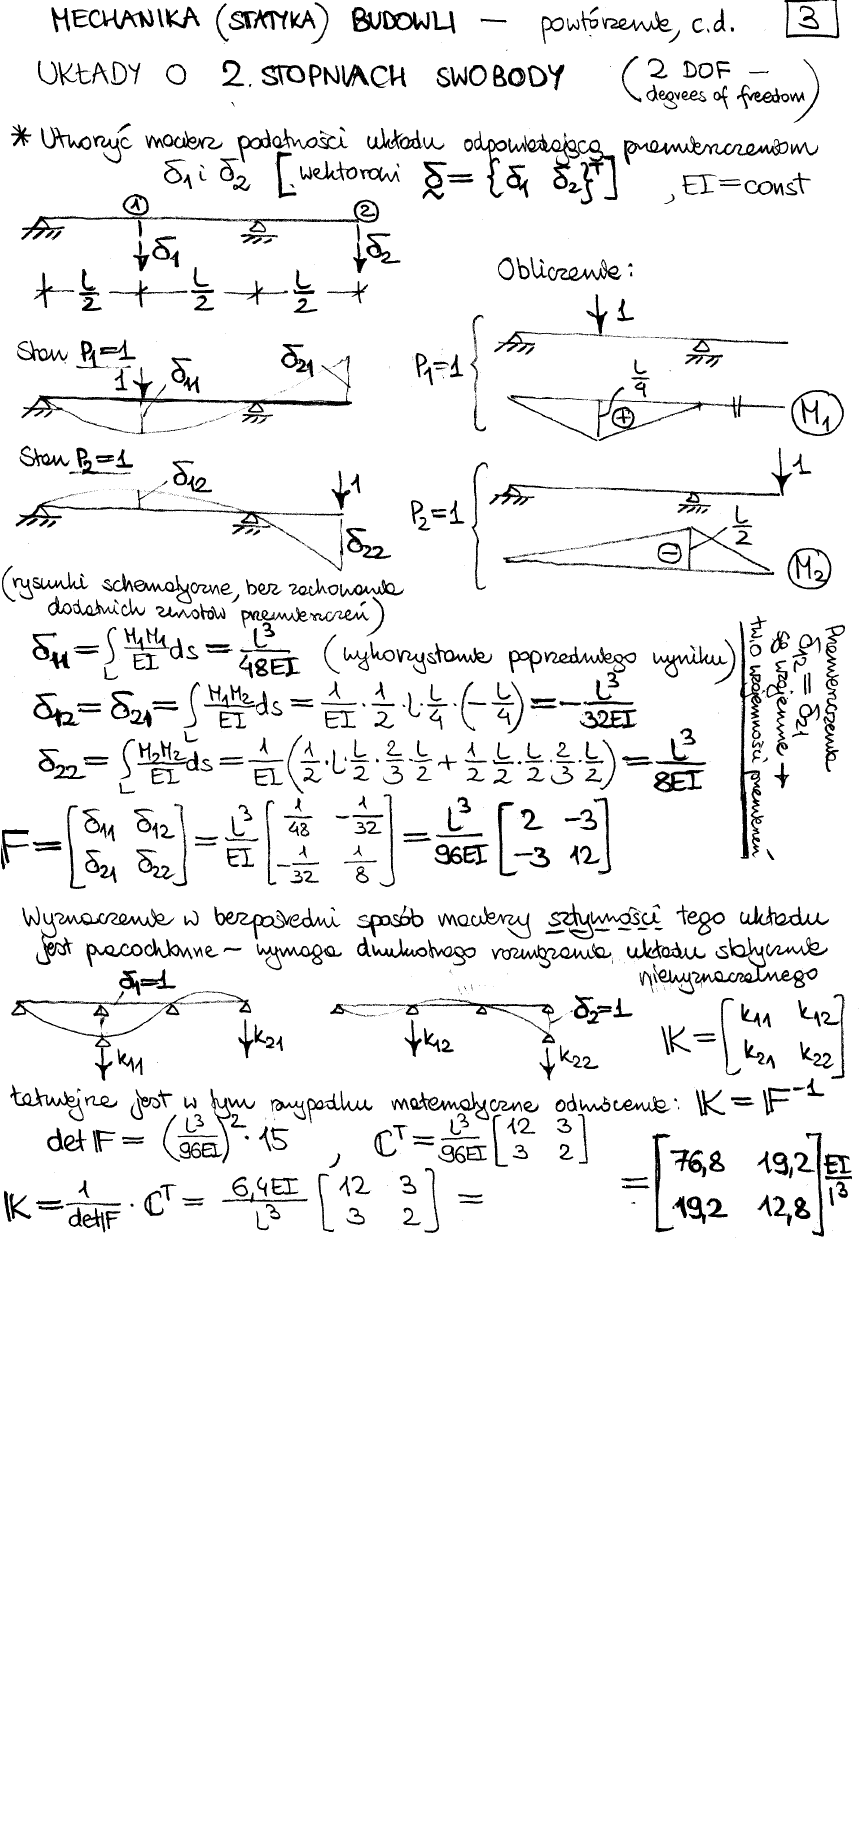 MECHANIKA (STATYKA) BUDOWLI — powtórzenie, c.d. 3
UKŁADY O 2. STOPNIACH SWOBODY (2 DOF — degrees of freedom)
* Utworzyć macierz podatności układu odpowiadającą przemieszczeniom
δ1 i δ2 [wektorowi δ = {δ1 δ2}^T], EI = const
1 2
δ1 δ2
L/2 L/2 L/2
Obliczenie:
Stan P1=1
1 δ11 δ21
P1=1 { 1
L/4 + M1
Stan P2=1
δ12 1 δ22
P2=1 { 1
L/2 − M2
(rysunki schematyczne, bez zachowania
dodatnich zwrotów przemieszczeń)
δ11 = ∫L M1M1/EI ds = L³/48EI (wykorzystanie poprzedniego wyniku)
δ12 = δ21 = ∫L M1M2/EI ds = 1/EI · 1/2 · L · L/4 · (−L/4) = −L³/32EI
δ22 = ∫L M2M2/EI ds = 1/EI (1/2 · L · L/2 · 2/3 · L/2 + 1/2 · L/2 · L/2 · 2/3 · L/2) = L³/8EI
Przemieszczenia
δ12 = δ21
są wzajemne →
tw. o wzajemności przemieszczeń
F = [δ11 δ12; δ21 δ22] = L³/EI [1/48 −1/32; −1/32 1/8] = L³/96EI [2 −3; −3 12]
Wyznaczenie w bezpośredni sposób macierzy sztywności tego układu
jest pracochłonne — wymaga dwukrotnego rozwiązania układu statycznie
niewyznaczalnego
δ1=1 k11 k21
δ2=1 k12 k22
K = [k11 k12; k21 k22]
Łatwiejsze jest w tym przypadku matematyczne odwrócenie: K = F⁻¹
det F = (L³/96EI)² · 15 , C^T = L³/96EI [12 3; 3 2]
K = 1/detF · C^T = 6,4EI/L³ [12 3; 3 2] = = [76,8 19,2; 19,2 12,8] EI/L³